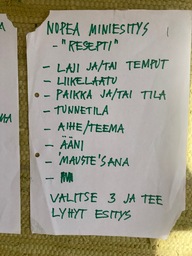 NOPEA MINIESITYS
- "RESEPTI"
- LAJI JA/TAI TEMPUT
- LIIKELAATU
- PAIKKA JA/TAI TILA
- TUNNETILA
- AIHE/TEEMA
- ÄÄNI
- 'MAUSTE'SANA
-
VALITSE 3 JA TEE
LYHYT ESITYS